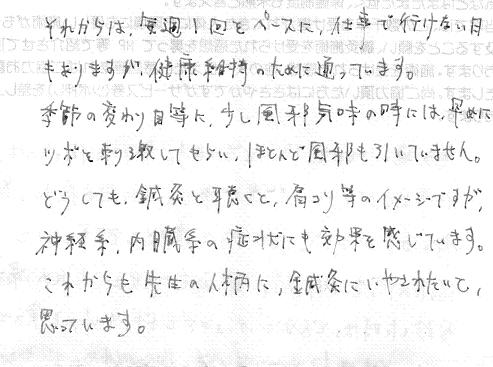 それからは、毎週1回をペースに、仕事で行けない日
もありますが、健康維持のために通っています。
季節の変わり目等に、少し風邪気味の時には、早めに
ツボを刺激してもらい、ほとんど風邪も引いていません。
どうしても、鍼灸と聴くと、肩コリ等のイメージですが、
神経系、内臓系の症状にも効果を感じています。
これからも先生の人柄に、鍼灸にいやされたいと、
思っています。